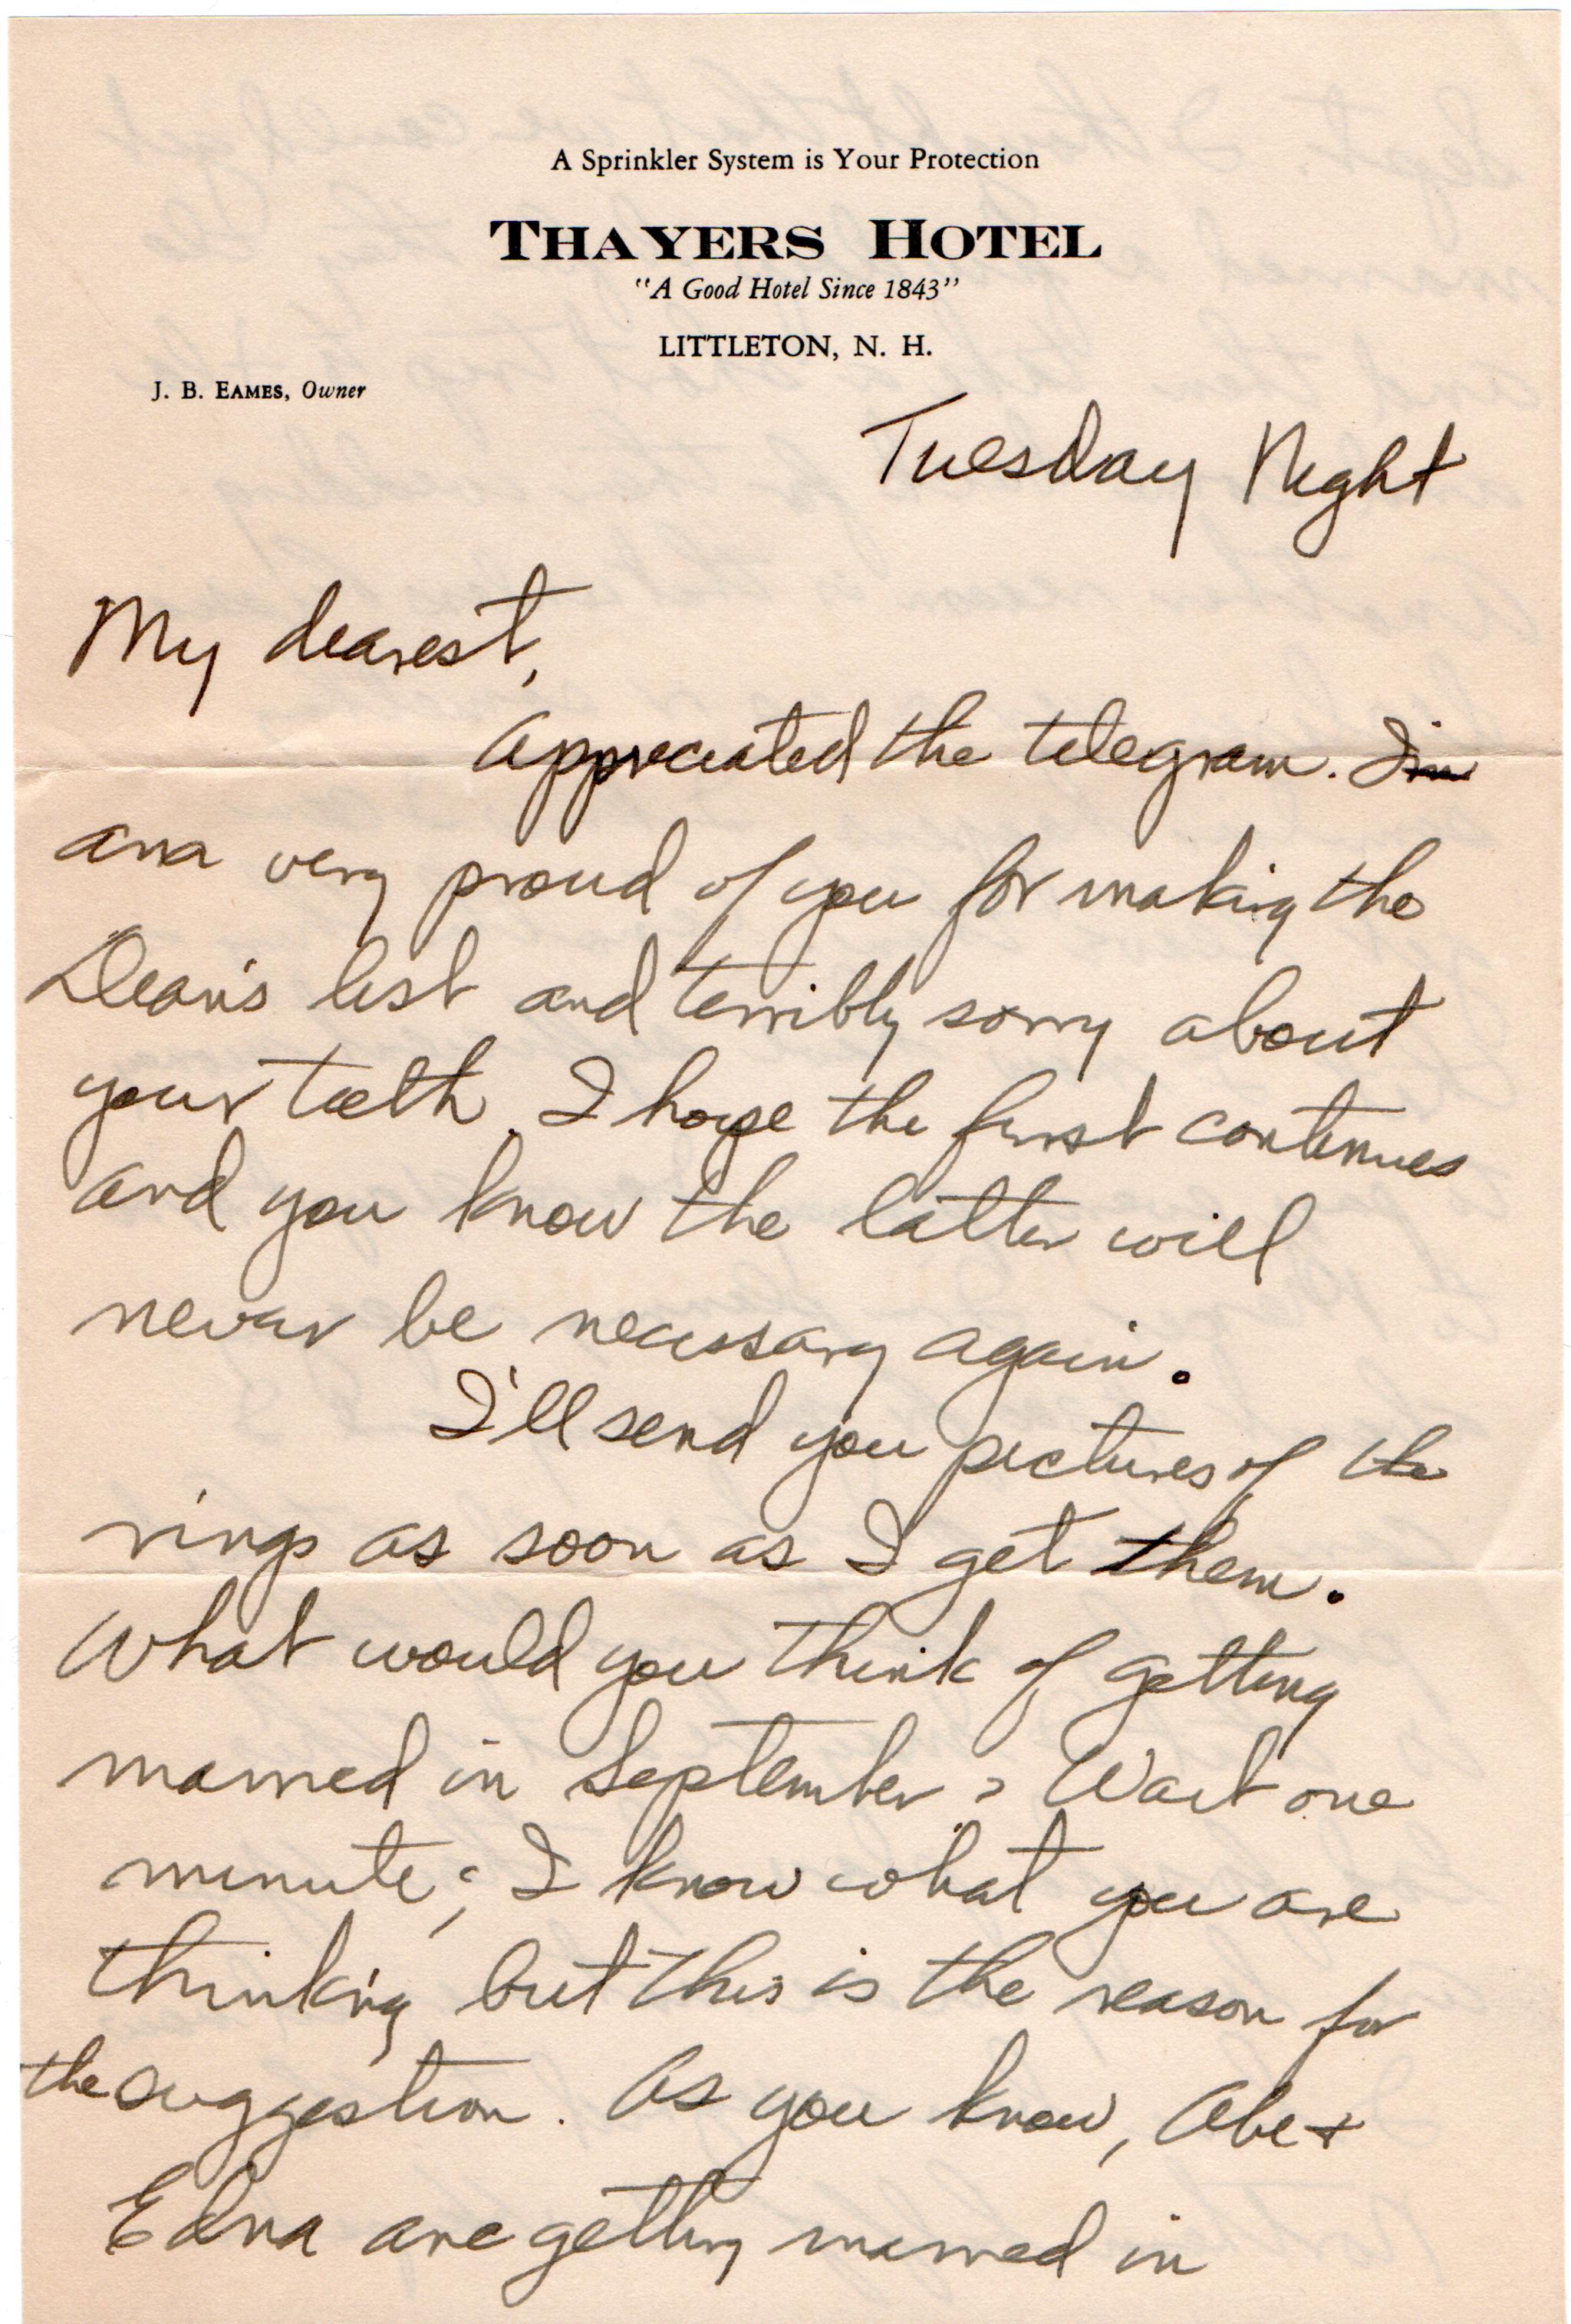 A Sprinkler System is Your Protection
THAYERS HOTEL
"A Good Hotel Since 1843"
LITTLETON, N. H.
J. B. EAMES, Owner
Tuesday Night
My dearest,
Appreciated the telegram. I'm
am very proud of you for making the
Dean's list and terribly sorry about
your teeth. I hope the first continues
and you know the latter will
never be necessary again.
I'll send you pictures of the
rings as soon as I get them.
What would you think of getting
married in September? Wait one
minute; I know what you are
thinking but this is the reason for
the suggestion. As you know, Abe +
Edna are getting married in